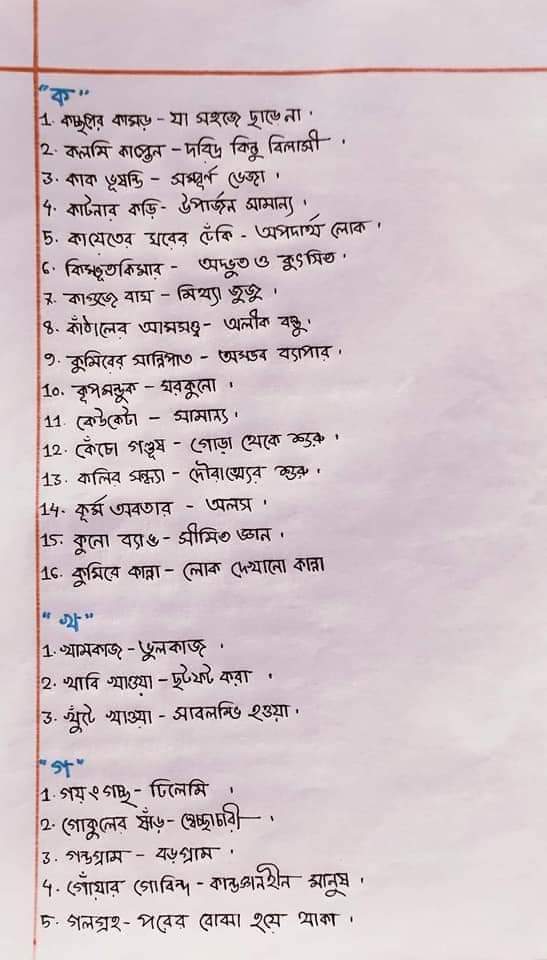 "ক"
1. কচ্ছপের কামড় - যা সহজে ছাড়ে না।
2. কলমি কাপ্তেন - দরিদ্র কিন্তু বিলাসী।
3. কাক ভূষন্ডি - সম্পূর্ণ ভেজা।
4. কাটনার কড়ি - উপার্জন সামান্য।
5. কায়েতের ঘরের ঢেঁকি - অপদার্থ লোক।
6. কিম্ভূতকিমার - অদ্ভুত ও কুৎসিত।
7. কাগুজে বাঘ - মিথ্যা জুজু।
8. কাঁঠালের আমসত্ত্ব - অলীক বস্তু।
9. কুমিরের সান্নিপাত - অসম্ভব ব্যাপার।
10. কূপমন্ডুক - ঘরকুনো।
11. কেউকেটা - সামান্য।
12. কেঁচো গণ্ডূষ - গোড়া থেকে শুরু।
13. কলির সন্ধ্যা - দৌরাত্ম্যের শুরু।
14. কূর্ম অবতার - অলস।
15. কুনো ব্যাঙ - সীমিত জ্ঞান।
16. কুমিরে কান্না - লোক দেখানো কান্না
"খ"
1. খামকাজ - ভুলকাজ।
2. খাবি খাওয়া - ছটফট করা।
3. খুঁটে খাওয়া - সাবলম্বি হওয়া।
"গ"
1. গয়ংগচ্ছ - ঢিলেমি।
2. গোকুলের ষাঁড় - স্বেচ্ছাচরী।
3. গন্ডগ্রাম - বড়গ্রাম।
4. গোঁয়ার গোবিন্দ - কান্ডজ্ঞানহীন মানুষ।
5. গলগ্রহ - পরের বোঝা হয়ে থাকা।